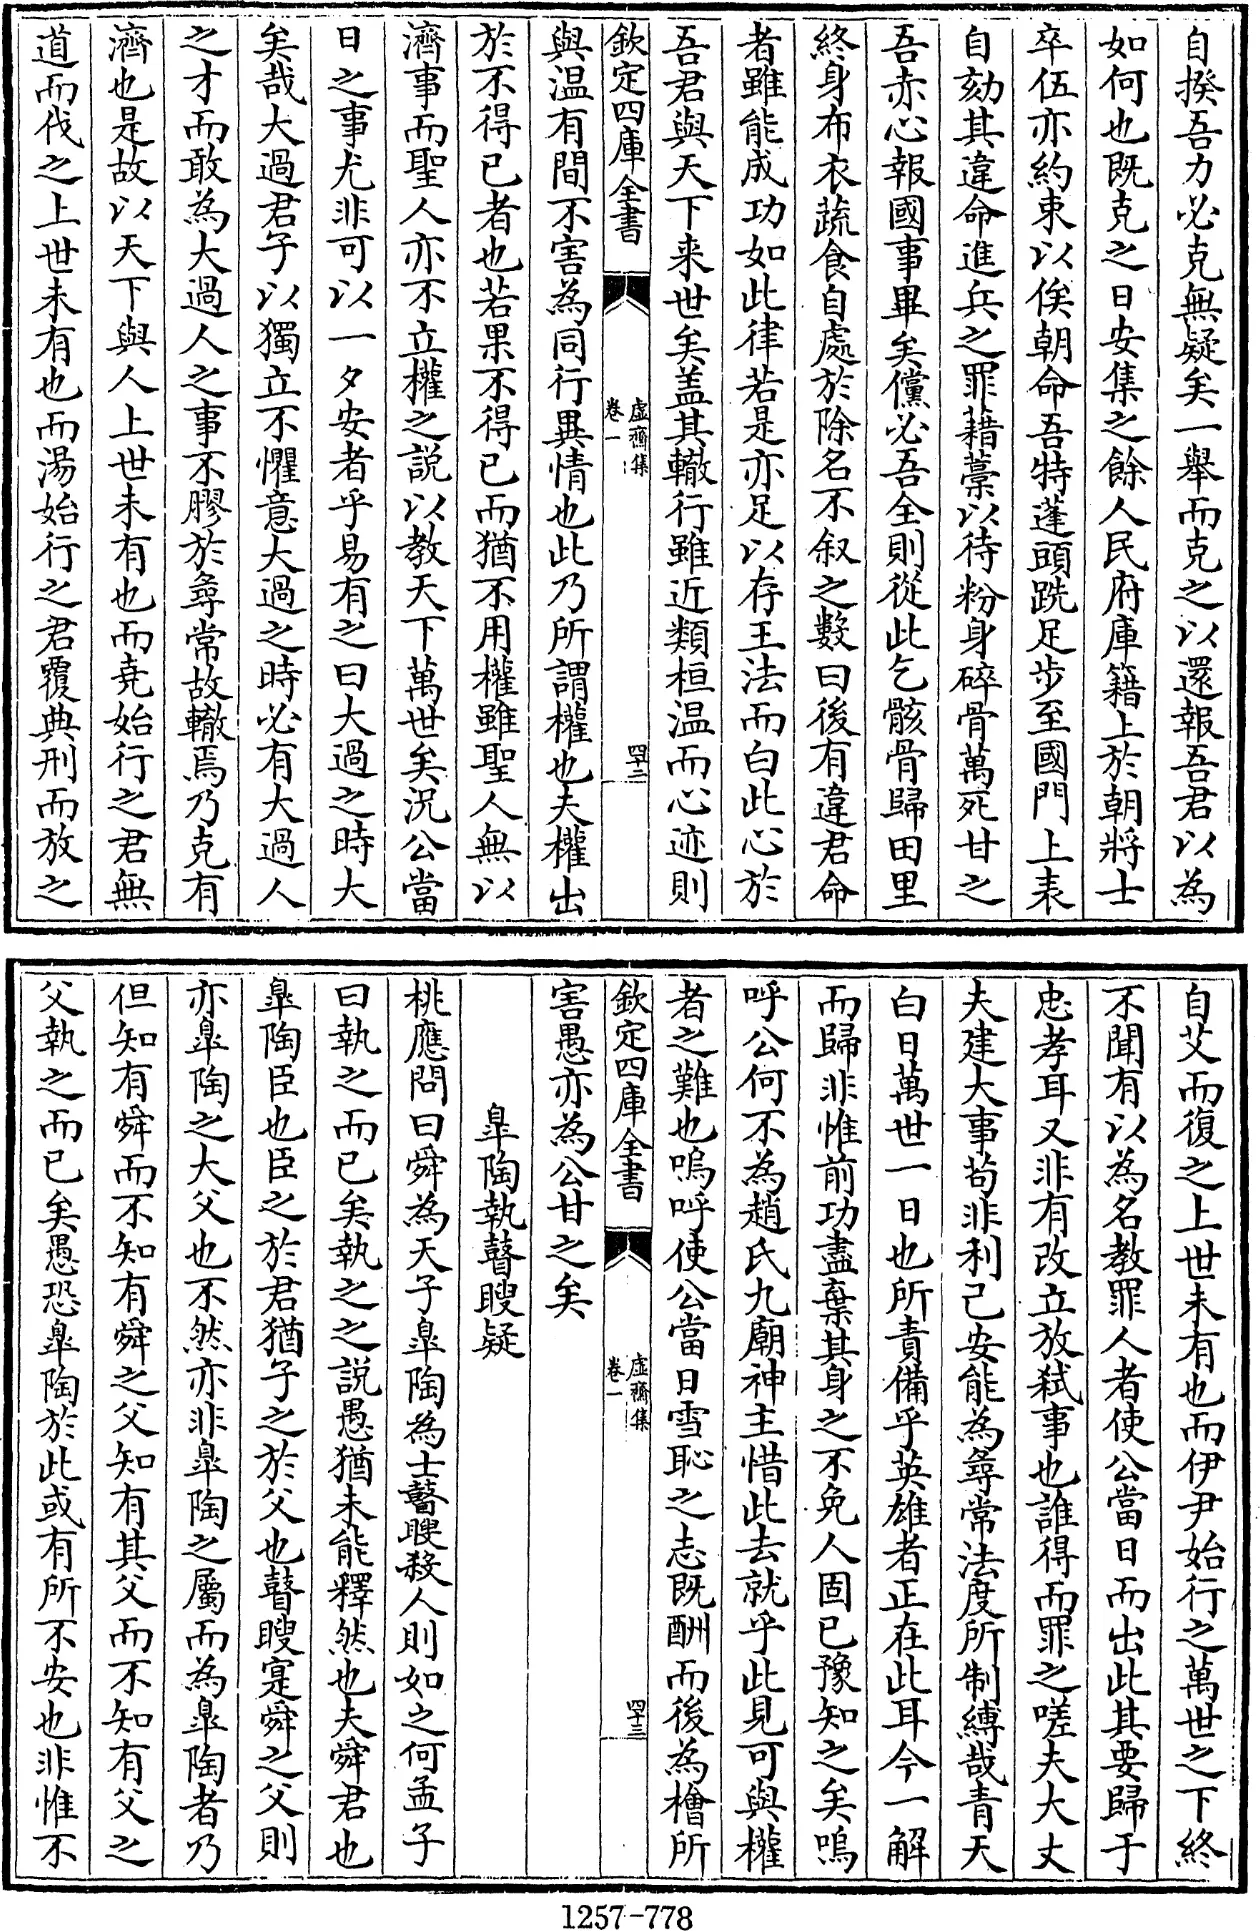 自揆吾力必克無疑矣一舉而克之以還報吾君以為
如何也既克之日安集之餘人民府庫籍上於朝將士
卒伍亦約束以俟朝命吾特蓬頭跣足步至國門上表
自劾其違命進兵之罪藉藁以待粉身碎骨萬死甘之
吾赤心報國事畢矣儻必吾全則從此乞骸骨歸田里
終身布衣蔬食自處於除名不叙之數曰後有違君命
者雖能成功如此律若是亦足以存王法而白此心於
吾君與天下来世矣盖其轍行雖近類桓温而心迹則
欽定四庫全書
虛齋集
卷一
四十二
與温有間不害為同行異情也此乃所謂權也夫權出
於不得已者也若果不得已而猶不用權雖聖人無以
濟事而聖人亦不立權之説以教天下萬世矣況公當
日之事尤非可以一夕安者乎易有之曰大過之時大
矣哉大過君子以獨立不懼意大過之時必有大過人
之才而敢為大過人之事不膠於尋常故轍焉乃克有
濟也是故以天下與人上世未有也而堯始行之君無
道而伐之上世未有也而湯始行之君覆典刑而放之
自艾而復之上世未有也而伊尹始行之萬世之下終
不聞有以為名教罪人者使公當日而出此其要歸于
忠孝耳又非有改立放弒事也誰得而罪之嗟夫大丈
夫建大事苟非利己安能為尋常法度所制縛哉青天
白日萬世一日也所責備乎英雄者正在此耳今一解
而歸非惟前功盡棄其身之不免人固已豫知之矣嗚
呼公何不為趙氏九廟神主惜此去就乎此見可與權
者之難也嗚呼使公當日雪恥之志既酬而後為檜所
欽定四庫全書
虛齋集
卷一
四十三
害愚亦為公甘之矣
臯陶執瞽瞍疑
桃應問曰舜為天子臯陶為士瞽瞍殺人則如之何孟子
曰執之而已矣執之之説愚猶未能釋然也夫舜君也
臯陶臣也臣之於君猶子之於父也瞽瞍寔舜之父則
亦臯陶之大父也不然亦非臯陶之屬而為臯陶者乃
但知有舜而不知有舜之父知有其父而不知有父之
父執之而已矣愚恐臯陶於此或有所不安也非惟不
1257-778